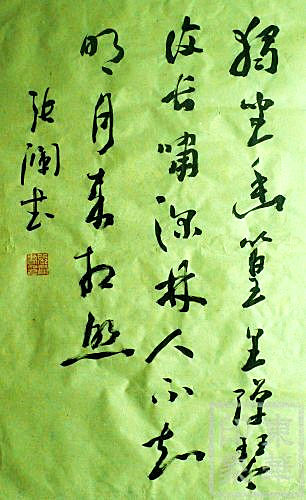 獨坐幽篁里彈琴
復長嘯深林人不知
明月來相照
張瀾書